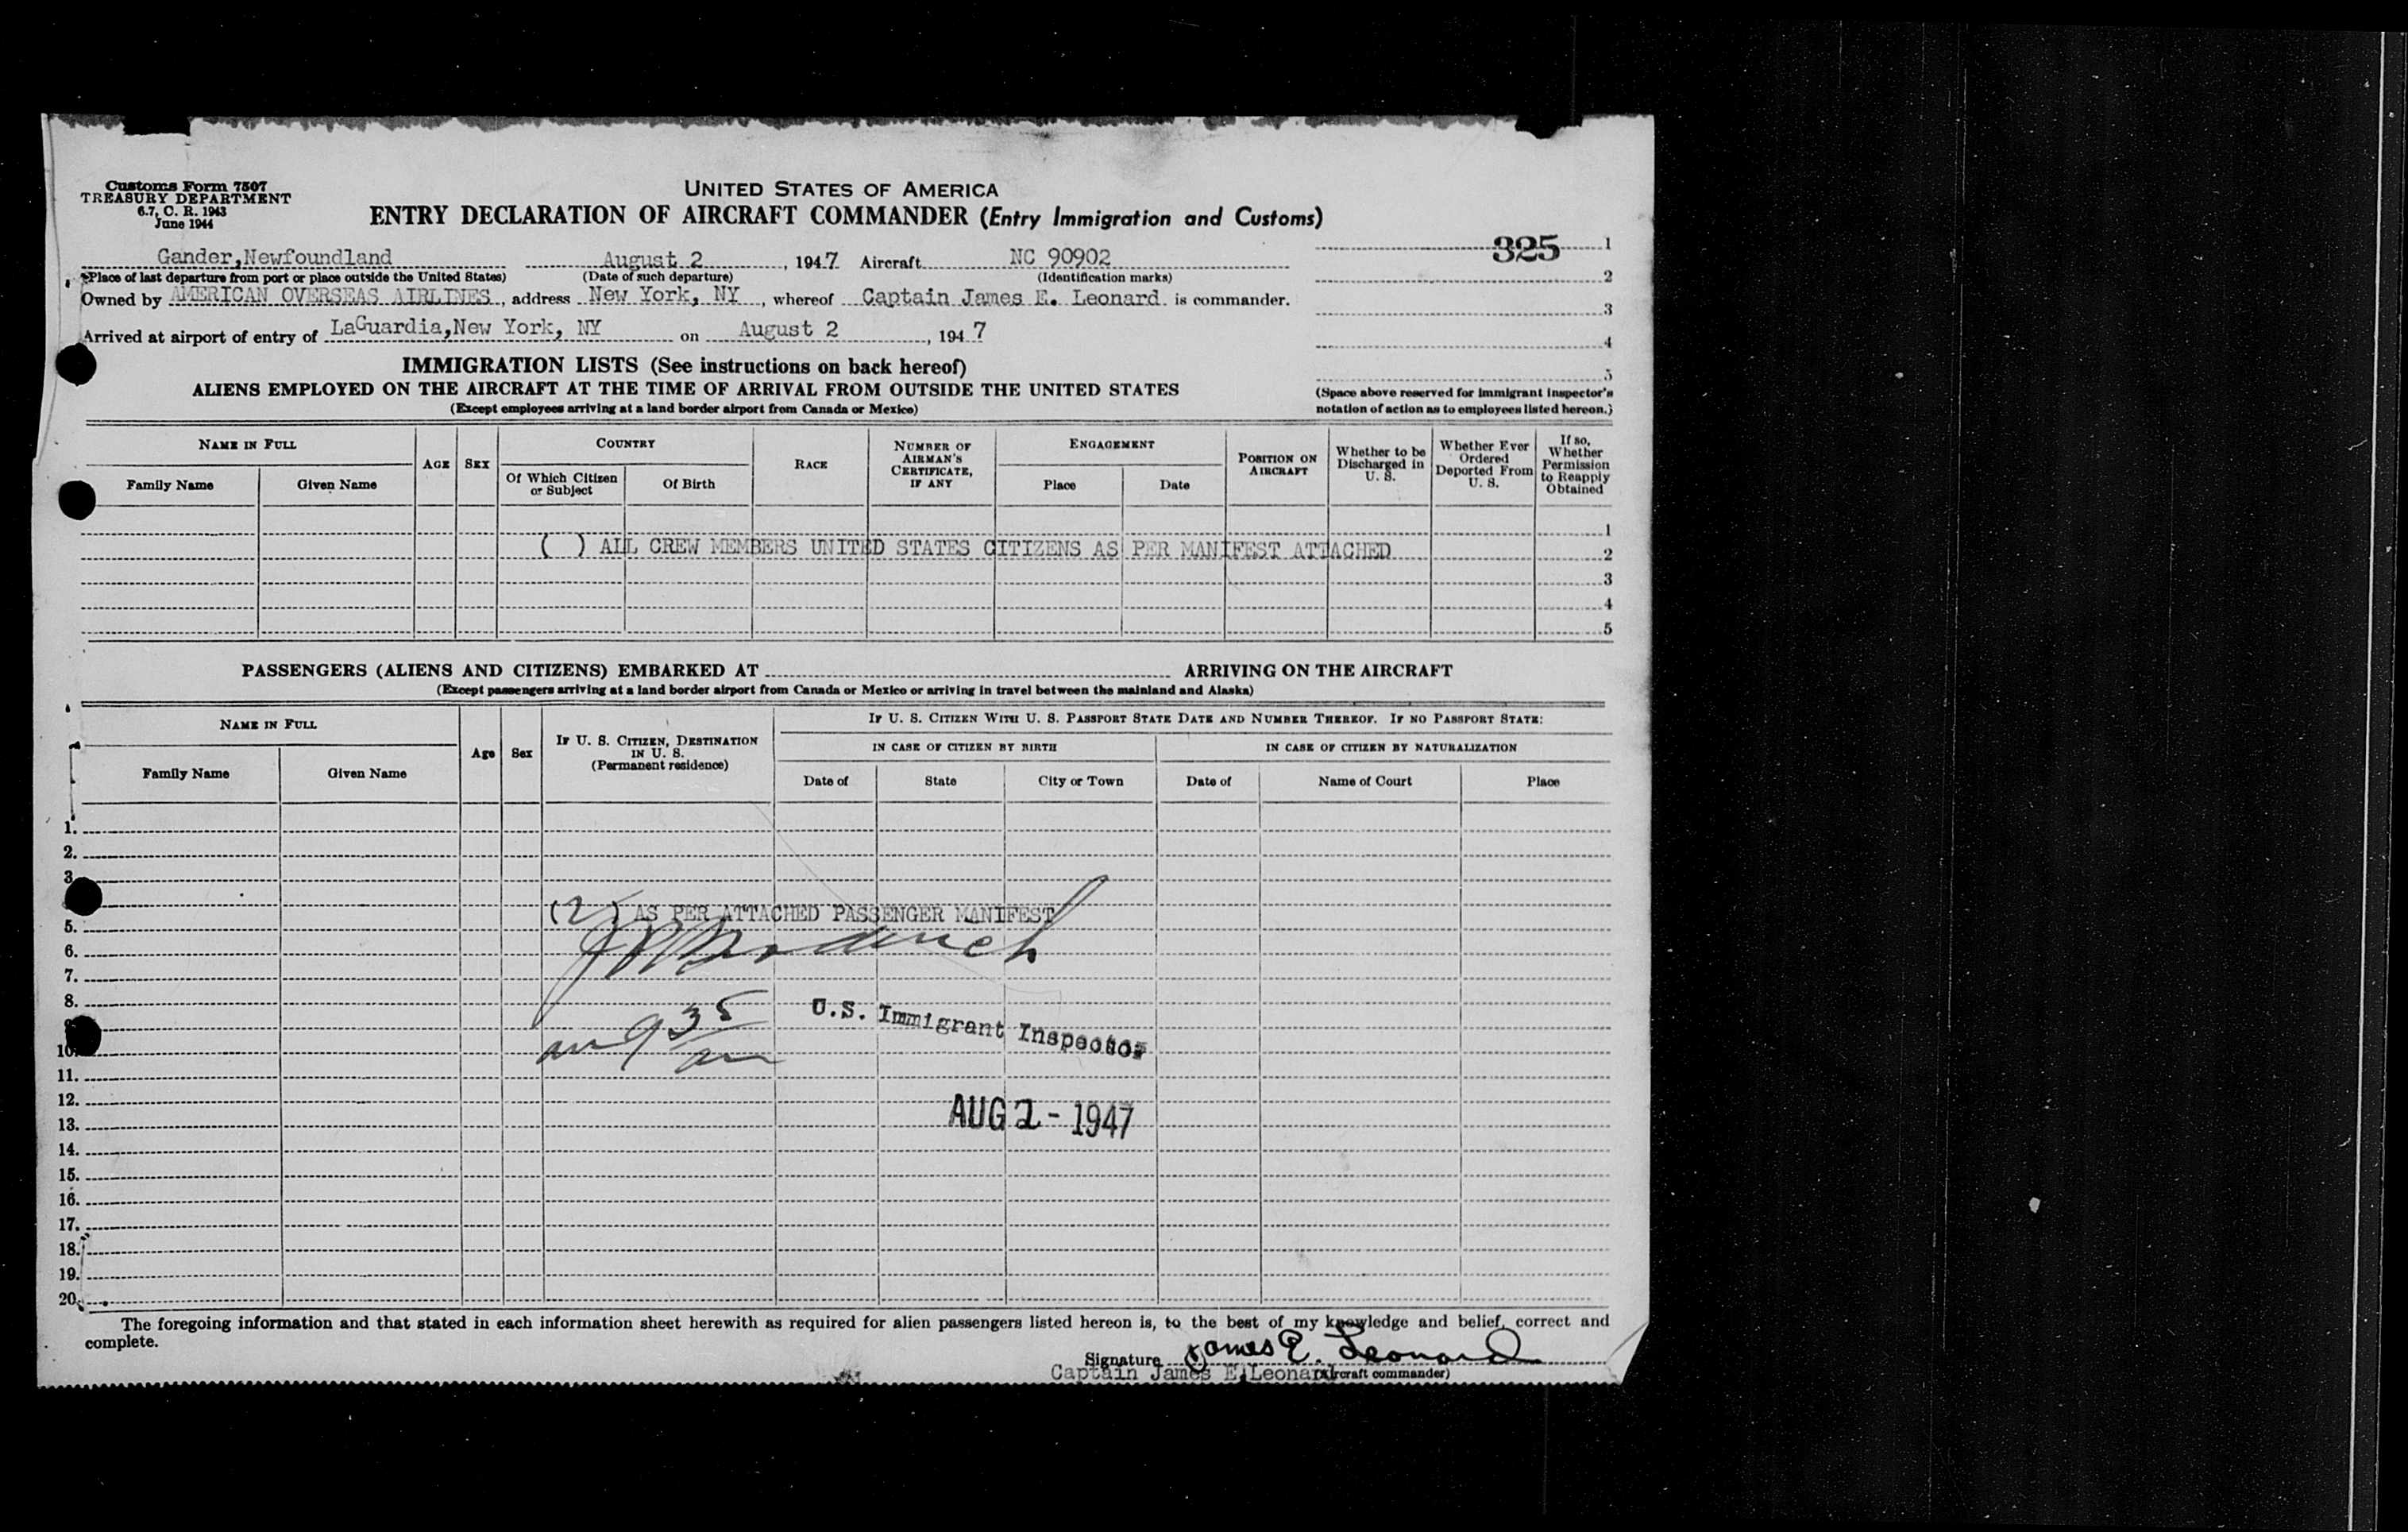 Customs Form 7507
TREASURY DEPARTMENT
6.7, C. R. 1943
June 1944
UNITED STATES OF AMERICA
ENTRY DECLARATION OF AIRCRAFT COMMANDER (Entry Immigration and Customs)
325 1
Gander,Newfoundland August 2, 1947 Aircraft NC 90902
(Place of last departure from port or place outside the United States) (Date of such departure) (Identification marks) 2
Owned by AMERICAN OVERSEAS AIRLINES, address New York, NY, whereof Captain James E. Leonard is commander.
3
Arrived at airport of entry of LaGuardia,New York, NY on August 2, 1947
4
IMMIGRATION LISTS (See instructions on back hereof)
5
ALIENS EMPLOYED ON THE AIRCRAFT AT THE TIME OF ARRIVAL FROM OUTSIDE THE UNITED STATES
(Except employees arriving at a land border airport from Canada or Mexico)
(Space above reserved for immigrant inspector's
notation of action as to employees listed hereon.)
NAME IN FULL AGE SEX COUNTRY RACE NUMBER OF AIRMAN'S CERTIFICATE, IF ANY ENGAGEMENT POSITION ON AIRCRAFT Whether to be Discharged in U. S. Whether Ever Ordered Deported From U. S. If so, Whether Permission to Reapply Obtained
Family Name Given Name Of Which Citizen or Subject Of Birth Place Date
1
( ) ALL CREW MEMBERS UNITED STATES CITIZENS AS PER MANIFEST ATTACHED 2
3
4
5
PASSENGERS (ALIENS AND CITIZENS) EMBARKED AT ARRIVING ON THE AIRCRAFT
(Except passengers arriving at a land border airport from Canada or Mexico or arriving in travel between the mainland and Alaska)
NAME IN FULL Age Sex IF U. S. CITIZEN, DESTINATION IN U. S. (Permanent residence) IF U. S. CITIZEN WITH U. S. PASSPORT STATE DATE AND NUMBER THEREOF. IF NO PASSPORT STATE:
IN CASE OF CITIZEN BY BIRTH IN CASE OF CITIZEN BY NATURALIZATION
Family Name Given Name Date of State City or Town Date of Name of Court Place
1.
2.
3.
(2) AS PER ATTACHED PASSENGER MANIFEST
5.
6.
7.
8.
U.S. Immigrant Inspector
935
am
10.
11.
12.
AUG 2 - 1947
13.
14.
15.
16.
17.
18.
19.
20.
The foregoing information and that stated in each information sheet herewith as required for alien passengers listed hereon is, to the best of my knowledge and belief, correct and
complete.
Signature James E. Leonard
Captain James E.Leonard (Aircraft commander)